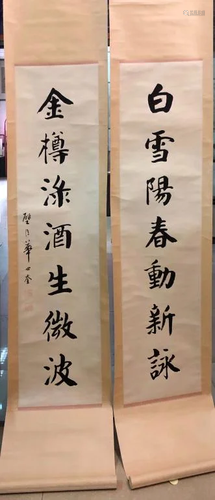 白雪陽春動新詠
金樽淥酒生微波
華世奎